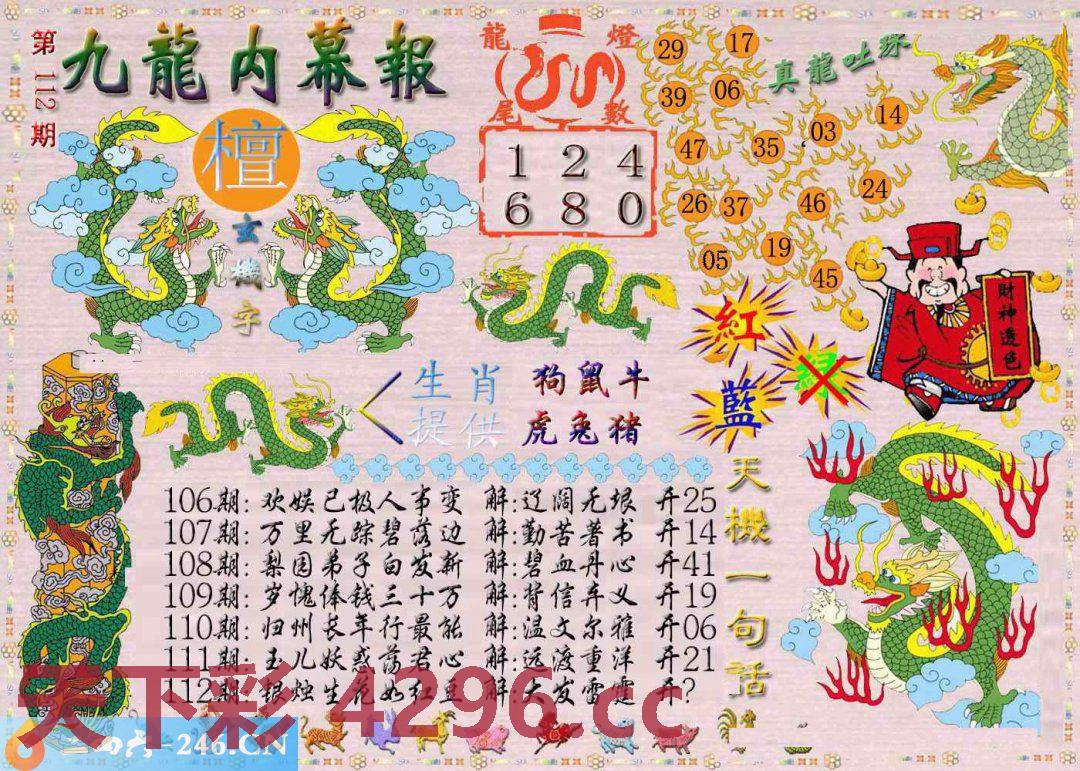 第112期
九龍内幕報
檀
玄機字
龍燈
尾數
1 2 4
6 8 0
真龍吐珠
29 17
39 06
47 35 03 14
26 37 46 24
05 19 45
財神透色
紅
藍
綠
生肖 狗鼠牛
提供 虎兔猪
106期: 欢娱已极人事变 解:辽阔无垠 开25
107期: 万里无踪碧落边 解:勤苦著书 开14
108期: 梨园弟子白发新 解:碧血丹心 开41
109期: 岁愧俸钱三十万 解:背信弃义 开19
110期: 归州长年行最能 解:温文尔雅 开06
111期: 玉儿妖惑荡君心 解:远渡重洋 开21
112期: 银烛生花如红豆 解:大发雷霆 开?
天機一句話
天下彩 4296.cc
=246.CN